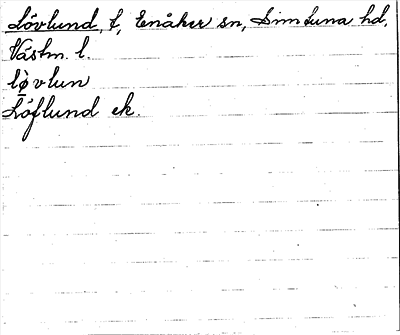 Lövlund, t, Enåker sn, Simtuna hd,
Västm. l.
lø̀vlun
Löflund ek.